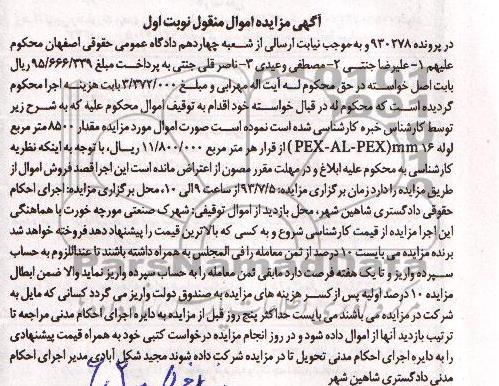 آگهی مزایده اموال منقول نوبت اول
در پرونده ۹۳۰۲۷۸ و به موجب نیابت ارسالی از شعبه چهاردهم دادگاه عمومی حقوقی اصفهان محکوم
علیهم ۱- علیرضا جنتی ۲- مصطفی وعیدی ۳- ناصر قلی جنتی به پرداخت مبلغ ۹۵/۶۶۶/۳۳۹ ریال
بابت اصل خواسته در حق محکوم له آیت اله مهرابی و مبلغ ۳/۳۷۲/۰۰۰ بابت هزینه اجرا محکوم
گردیده است که محکوم له در قبال خواسته خود اقدام به توقیف اموال محکوم علیه که به شرح زیر
توسط کارشناس خبره کارشناسی شده است نموده است صورت اموال مورد مزایده مقدار ۸۵۰۰ متر مربع
لوله ۱۶ PEX-AL-PEX)mm) از قرار هر متر مربع ۱۱/۸۰۰/۰۰۰ ریال، با توجه به اینکه نظریه
کارشناسی به محکوم علیه ابلاغ و در مهلت مقرر مصون از اعتراض مانده است این اجرا قصد فروش اموال از
طریق مزایده را دارد زمان برگزاری مزایده: ۹۳/۷/۵ از ساعت ۹ الی ۱۰، محل برگزاری مزایده: اجرای احکام
حقوقی دادگستری شاهین شهر، محل بازدید از اموال توقیفی: شهرک صنعتی مورچه خورت با هماهنگی
این اجرا مزایده از قیمت کارشناسی شروع و به کسی که بالاترین قیمت را پیشنهاد دهد فروخته خواهد شد
برنده مزایده می بایست ۱۰ درصد از ثمن معامله را فی المجلس به همراه داشته باشند تا عنداللزوم به حساب
سپرده واریز و تا یک هفته فرصت دارد مابقی ثمن معامله را به حساب سپرده واریز نماید والا ضمن ابطال
مزایده ۱۰ درصد اولیه پس از کسر هزینه های مزایده به صندوق دولت واریز می گردد کسانی که مایل به
شرکت در مزایده می باشند می بایست حداکثر پنج روز قبل از مزایده به دایره اجرای احکام مدنی مراجعه تا
ترتیب بازدید آنها از اموال داده شود و در روز انجام مزایده درخواست کتبی خود به همراه قیمت پیشنهادی
را به دایره اجرای احکام مدنی تحویل تا در مزایده شرکت داده شوند مجید شکل آبادی مدیر اجرای احکام
مدنی دادگستری شاهین شهر